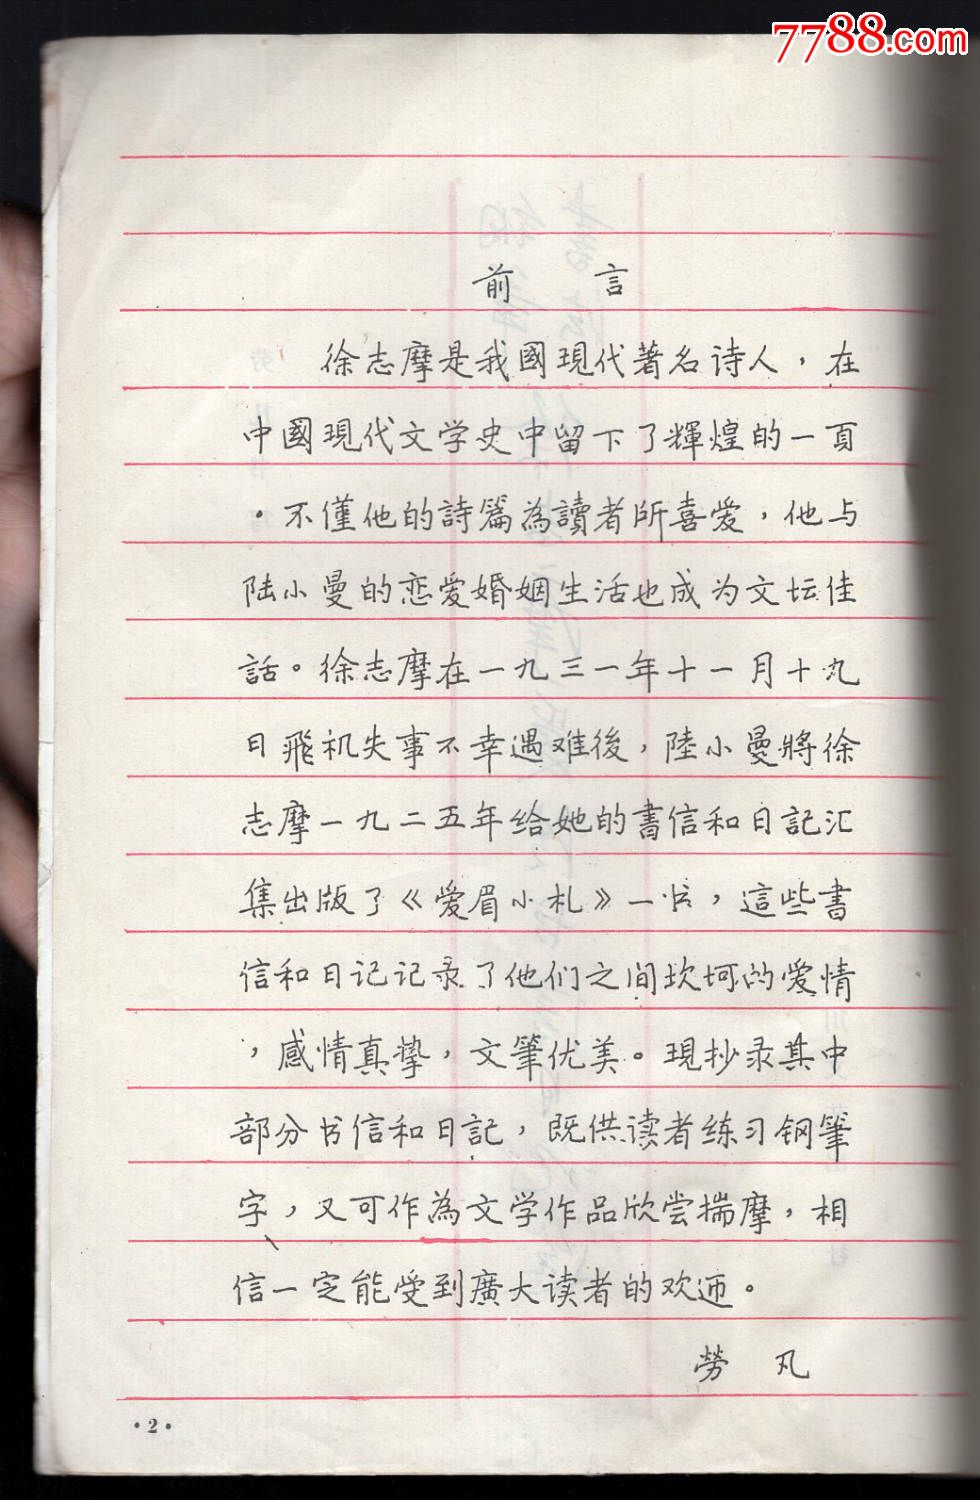 7788.com
前 言
徐志摩是我國現代著名诗人，在
中國現代文学史中留下了輝煌的一頁
。不僅他的詩篇為讀者所喜爱，他与
陆小曼的恋爱婚姻生活也成为文坛佳
話。徐志摩在一九三一年十一月十九
日飛机失事不幸遇难後，陸小曼將徐
志摩一九二五年给她的書信和日記汇
集出版了《爱眉小札》一书，這些書
信和日记记录了他们之间坎坷的爱情
，感情真挚，文筆优美。現抄录其中
部分书信和日記，既供读者练习钢筆
字，又可作為文学作品欣尝揣摩，相
信一定能受到廣大读者的欢迊。
勞 凡
·2·